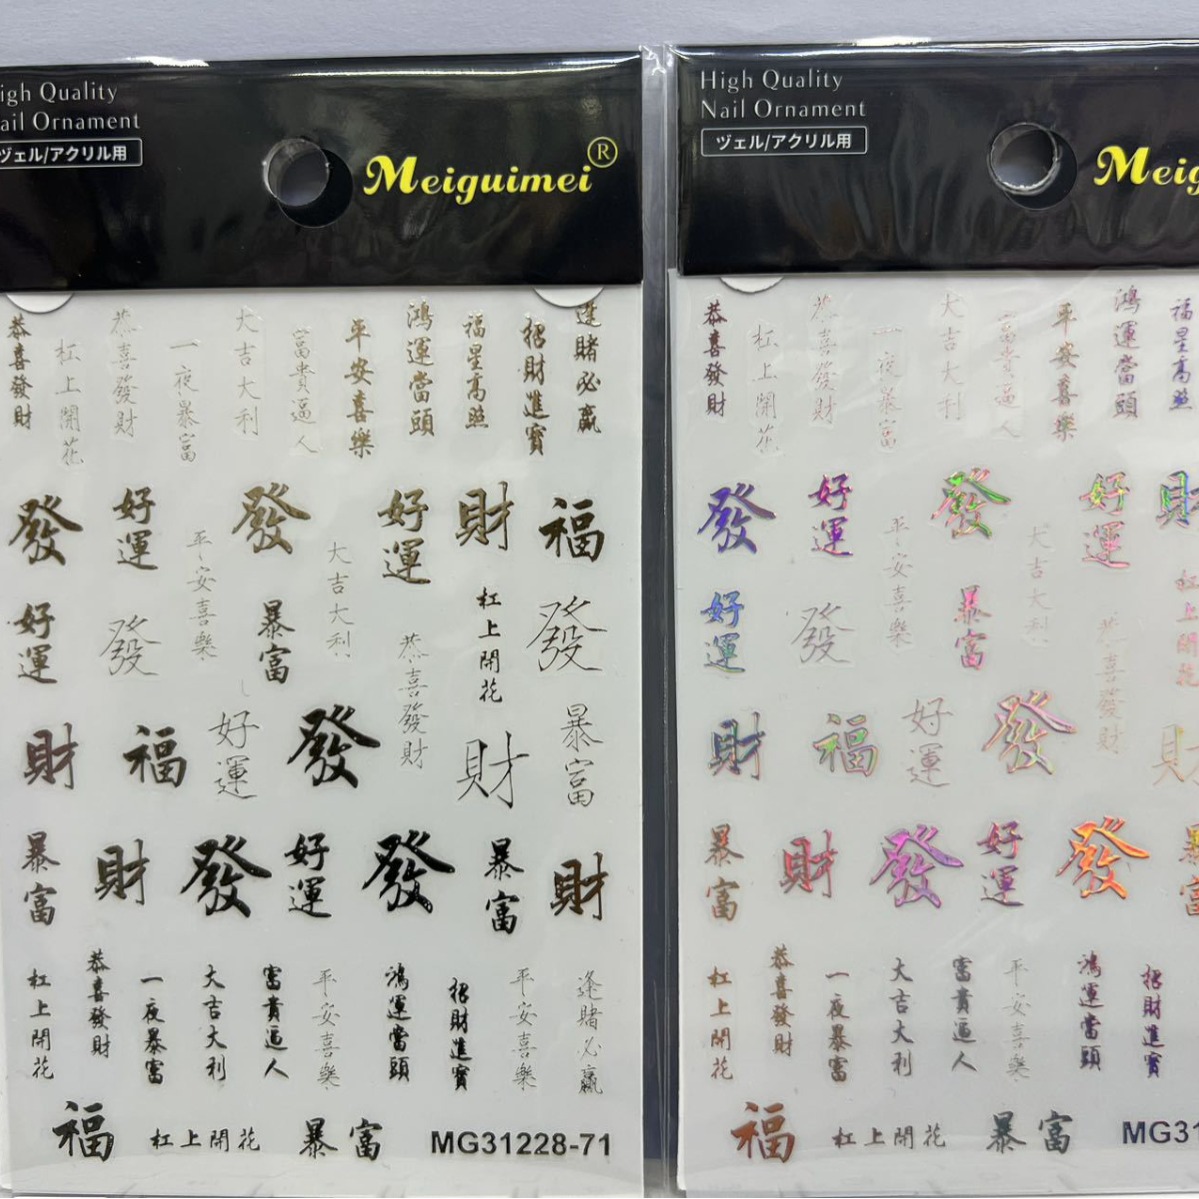 igh Quality
ail Ornament
ヅェル/アクリル用
Meiguimei®
恭喜發財
杠上開花
恭喜發財
一夜暴富
大吉大利
富貴逼人
平安喜樂
鴻運當頭
福星高照
招財進寶
逢賭必贏
發
好運
發
好運
財
福
平安喜樂
大吉大利
好運
發
暴富
恭喜發財
杠上開花
發
財
福
好運
發
財
暴富
暴富
財
發
好運
發
暴富
財
杠上開花
恭喜發財
一夜暴富
大吉大利
富貴逼人
平安喜樂
鴻運當頭
招財進寶
平安喜樂
逢賭必贏
福
杠上開花
暴富
MG31228-71
High Quality
Nail Ornament
ヅェル/アクリル用
Meig
恭喜發財
杠上開花
恭喜發財
一夜暴富
大吉大利
富貴逼人
平安喜樂
鴻運當頭
福星高照
發
好運
發
好運
財
平安喜樂
大吉大利
好運
發
暴富
恭喜發財
杠上開花
財
福
好運
發
財
暴富
財
發
好運
發
暴富
杠上開花
恭喜發財
一夜暴富
大吉大利
富貴逼人
平安喜樂
鴻運當頭
招財進寶
福
杠上開花
暴富
MG31